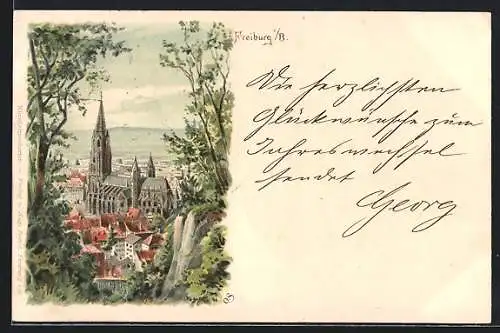 Freiburg i/B.
Die herzlichsten
Glückwünsche zum
Jahreswechsel
sendet
Georg